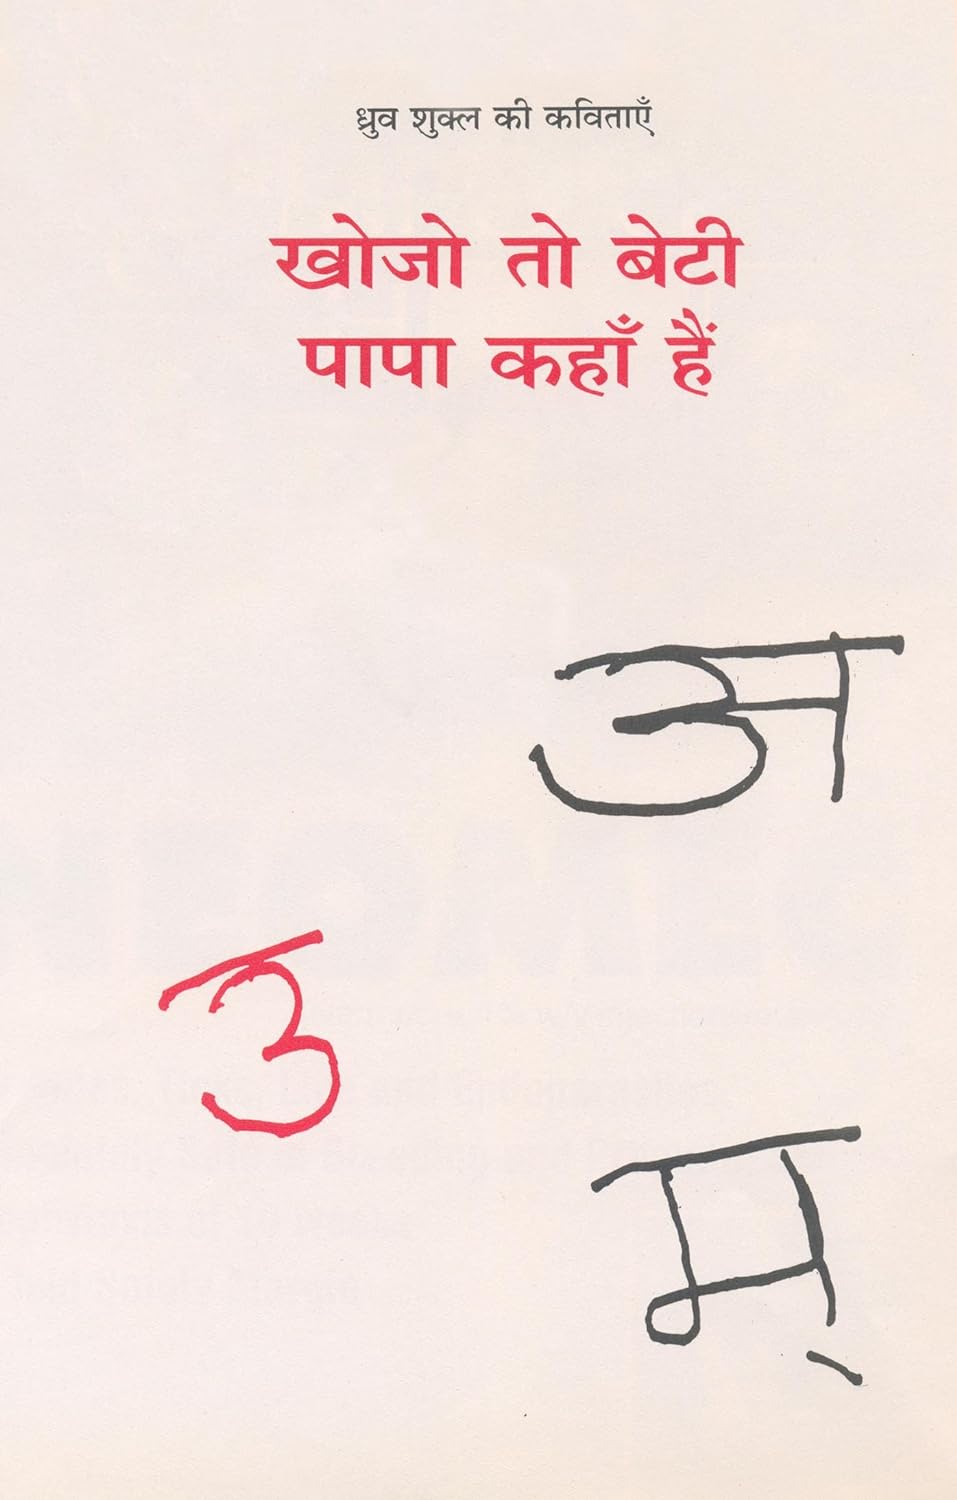 ध्रुव शुक्ल की कविताएँ
खोजो तो बेटी
पापा कहाँ हैं
अ
उ
म्